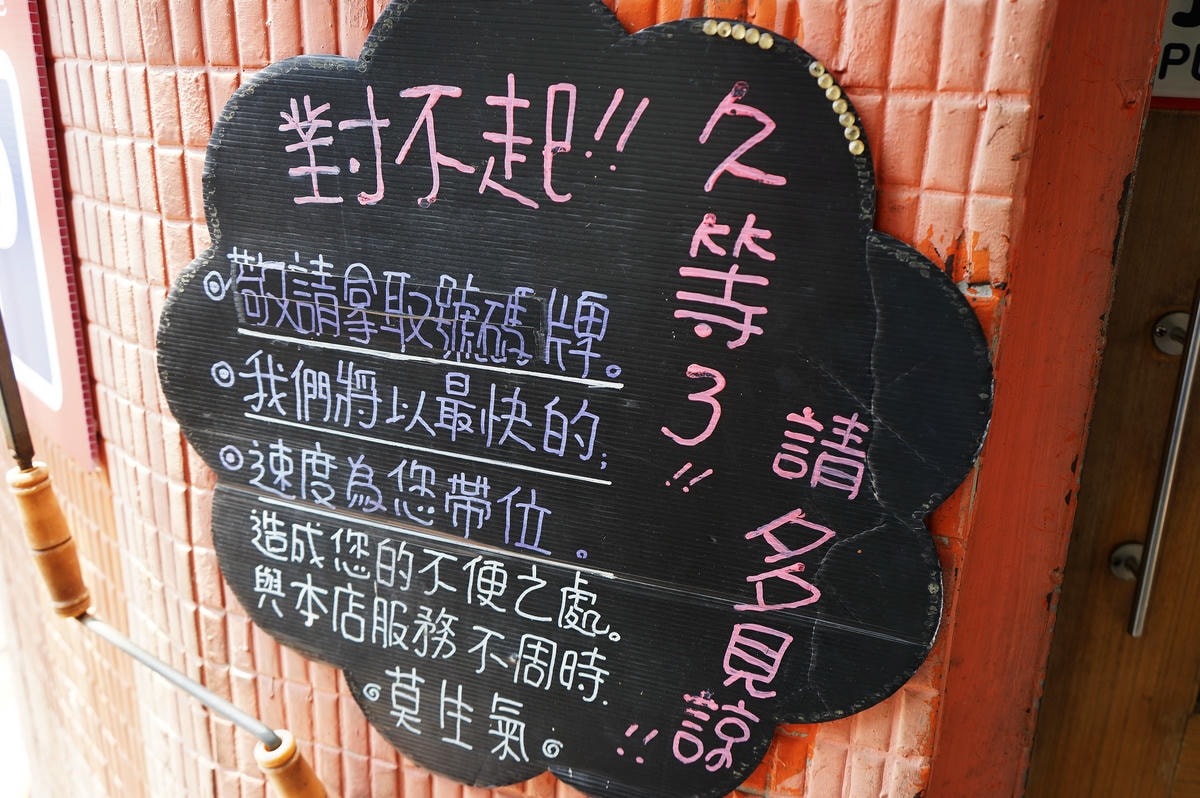 對不起!!
久等了!!
敬請拿取號碼牌。
我們將以最快的;
速度為您帶位。
造成您的不便之處。
與本店服務不周時.
莫生氣
請多見諒!!